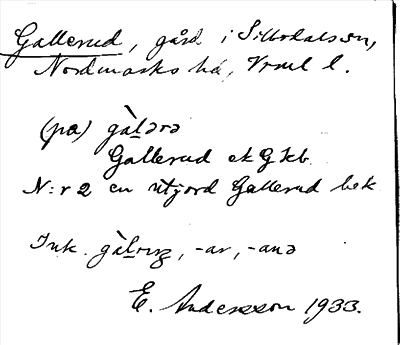 Gallerud, gård i Sillbodals sn,
Nordmarks hd, Vrml l.
(pa) gàlərə
Gallerud ek G kb
N:r 2 en utjord Gallerud bek
Ink. gàl, -ar, -anə
E. Andersson 1933.